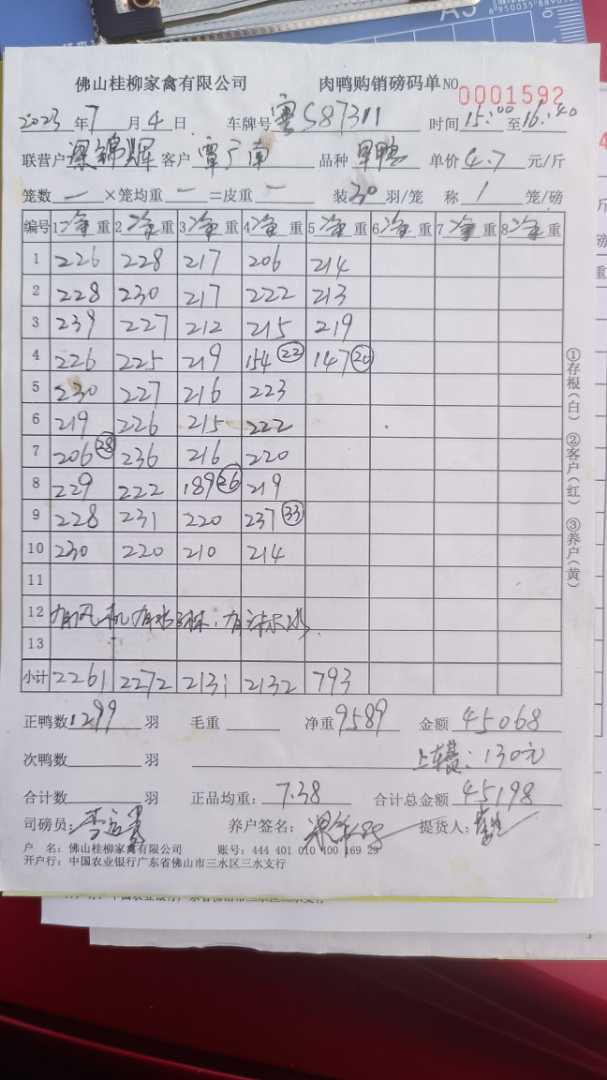 佛山桂柳家禽有限公司 肉鸭购销磅码单 NO 0001592
2023年7月4日 车牌号 粤S87311 时间15:00至16:40
联营户 梁锦辉 客户 覃广南 品种 旱鸭 单价 4.7 元/斤
笼数 一 ×笼均重 一 =皮重 一 装30羽/笼 称 1 笼/磅
编号 1净重 2净重 3净重 4净重 5净重 6净重 7净重 8净重
1 226 228 217 206 214
2 228 230 217 222 213
3 239 227 212 215 219
4 226 225 219 154 22 147 20
5 230 227 216 223
6 219 226 215 222
7 206 28 236 216 220
8 229 222 189 26 219
9 228 231 220 237 33
10 230 220 210 214
11
12 有风机 有
13
小计 2261 2272 2131 2132 793
正鸭数 1299 羽 毛重 净重 9589 金额 45068
次鸭数 羽 上车费:130元
合计数 羽 正品均重: 7.38 合计总金额 45198
司磅员: 养户签名: 提货人:
户 名: 佛山桂柳家禽有限公司 账号: 444 401 010 400 169 29
开户行: 中国农业银行广东省佛山市三水区三水支行
①存根(白) ②客户(红) ③养户(黄)